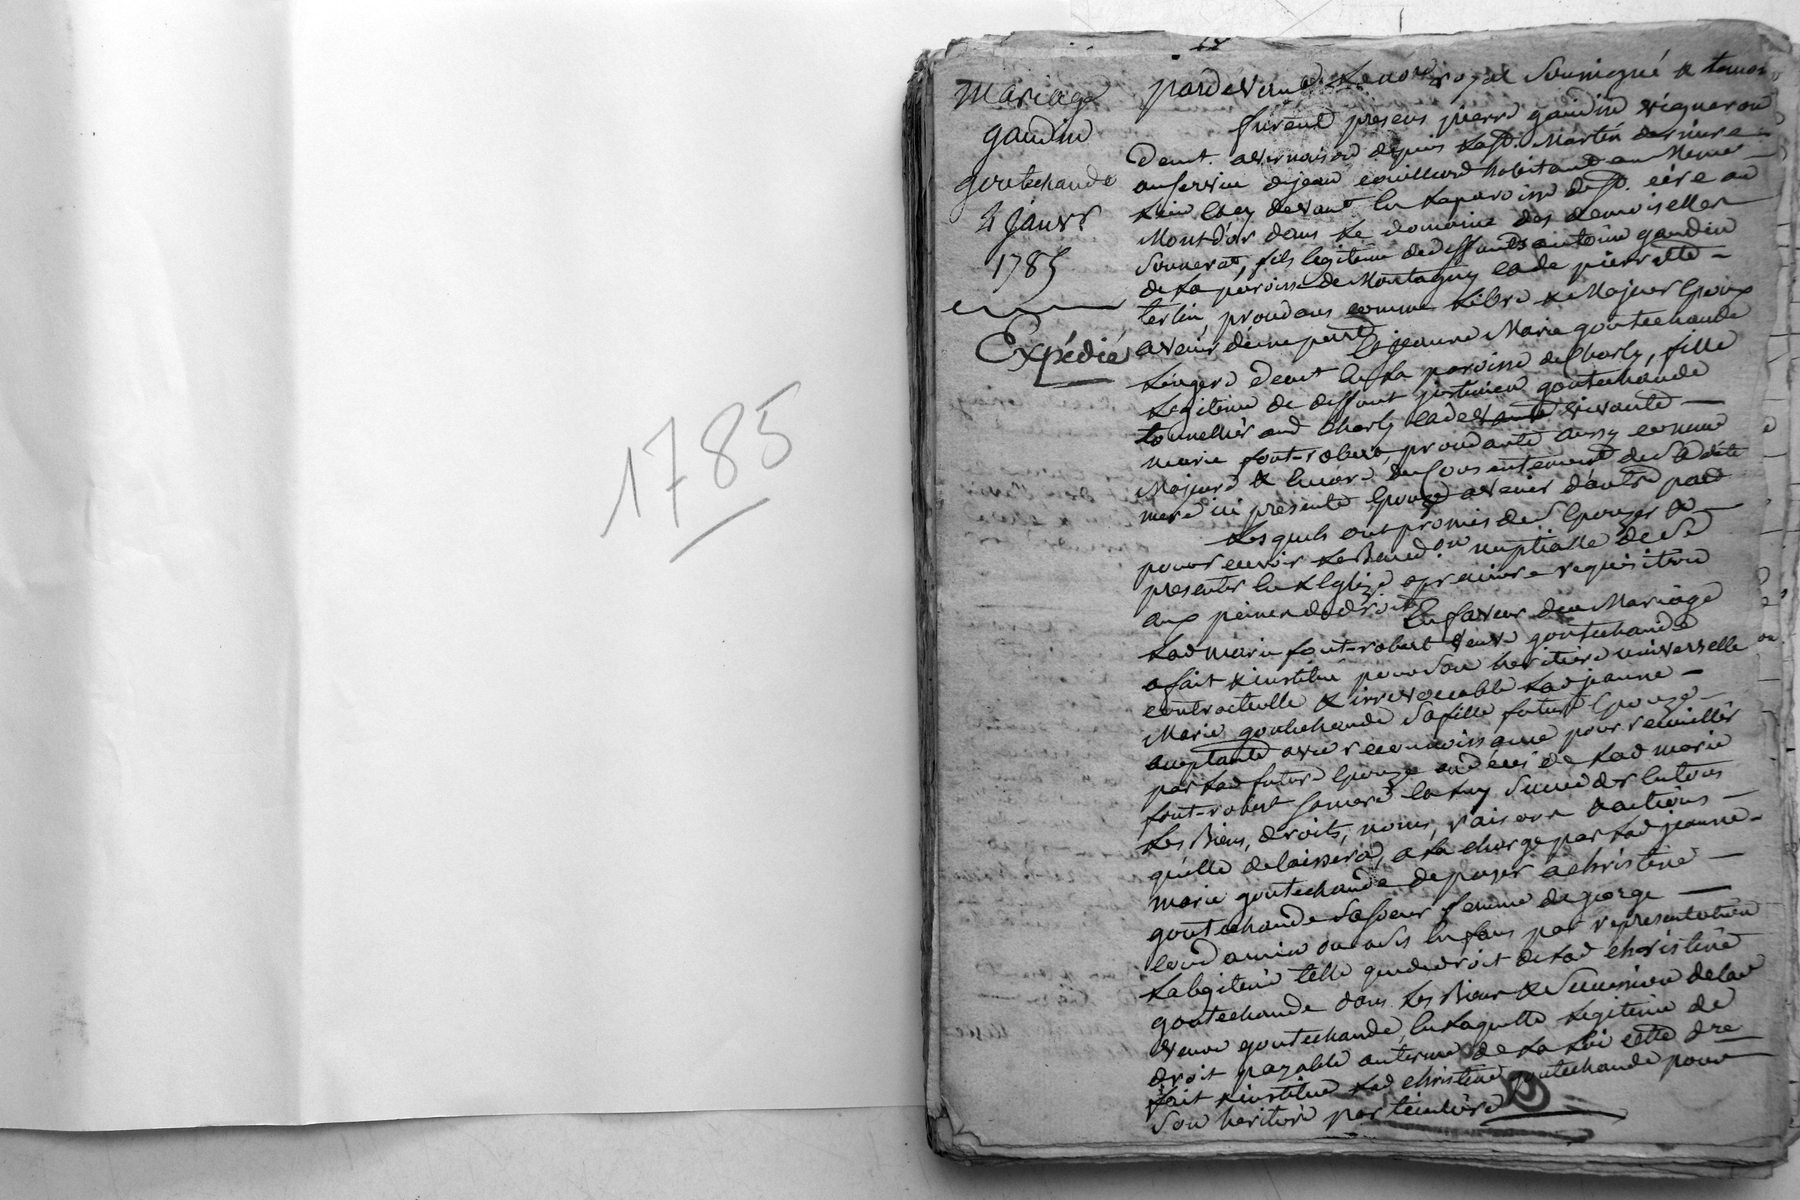 1785
mariage
gaudin
goutechaude
4 janvr
1785
Expédié
pardevant le nore royal soussigné & temoins
furent presens pierre gaudin vigneron
demt. a vernaison depuis la st. Martin derniere
au service de jean couillard habitant au meme
lieu cy devant en la paroisse de st. cire au
Montdor dans le domaine des demoiselles
Sonnerat, fils legitime de deffunts antoine gaudin
de la paroisse de Montagny et de pierrette
terlin, procedans comme libre & Majeur Epoux
avenir d'une part Et jeanne Marie goutechaude
lingere demt en la paroisse de Charly, fille
legitime de deffunt justinien goutechaude
tonnellier aud Charly et de vivante
marie font-robert, procedante aussy comme
Majeure & encore du Consentement de sa dite
mere ici presente Epouze avenir d'autre part
Lesquels ont promis de s'Epouzer &
pour recevoir la Bened.on nuptialle de se
presenter en Leglize a premiere requisition
aux peines de droit En faveur dud Mariage
lad marie font-robert veuve goutechaude
a fait & institué pour son heritiere universelle
contractuelle & irrevocable lad jeanne
Marie goutechaude sa fille future Epouze
acceptante avec reconnoissance pour recueillir
par lad future Epouze au décés de lad marie
font-robert sa mere et luy succeder en tous
les Biens, droits, noms, raisons & actions
qu'elle delaissera, a la charge par lad jeanne
marie goutechaude de payer a christine
goutechaude sa soeur femme de george
ou a ses Enfans par representation
la legitime telle que de droit de lad christine
goutechaude dans les Biens & Succession de lad
veuve goutechaude, en laquelle legitime de
droit payable au terme de la Loi cette dre
fait & institue lad christine goutechaude pour
son heritiere particuliere